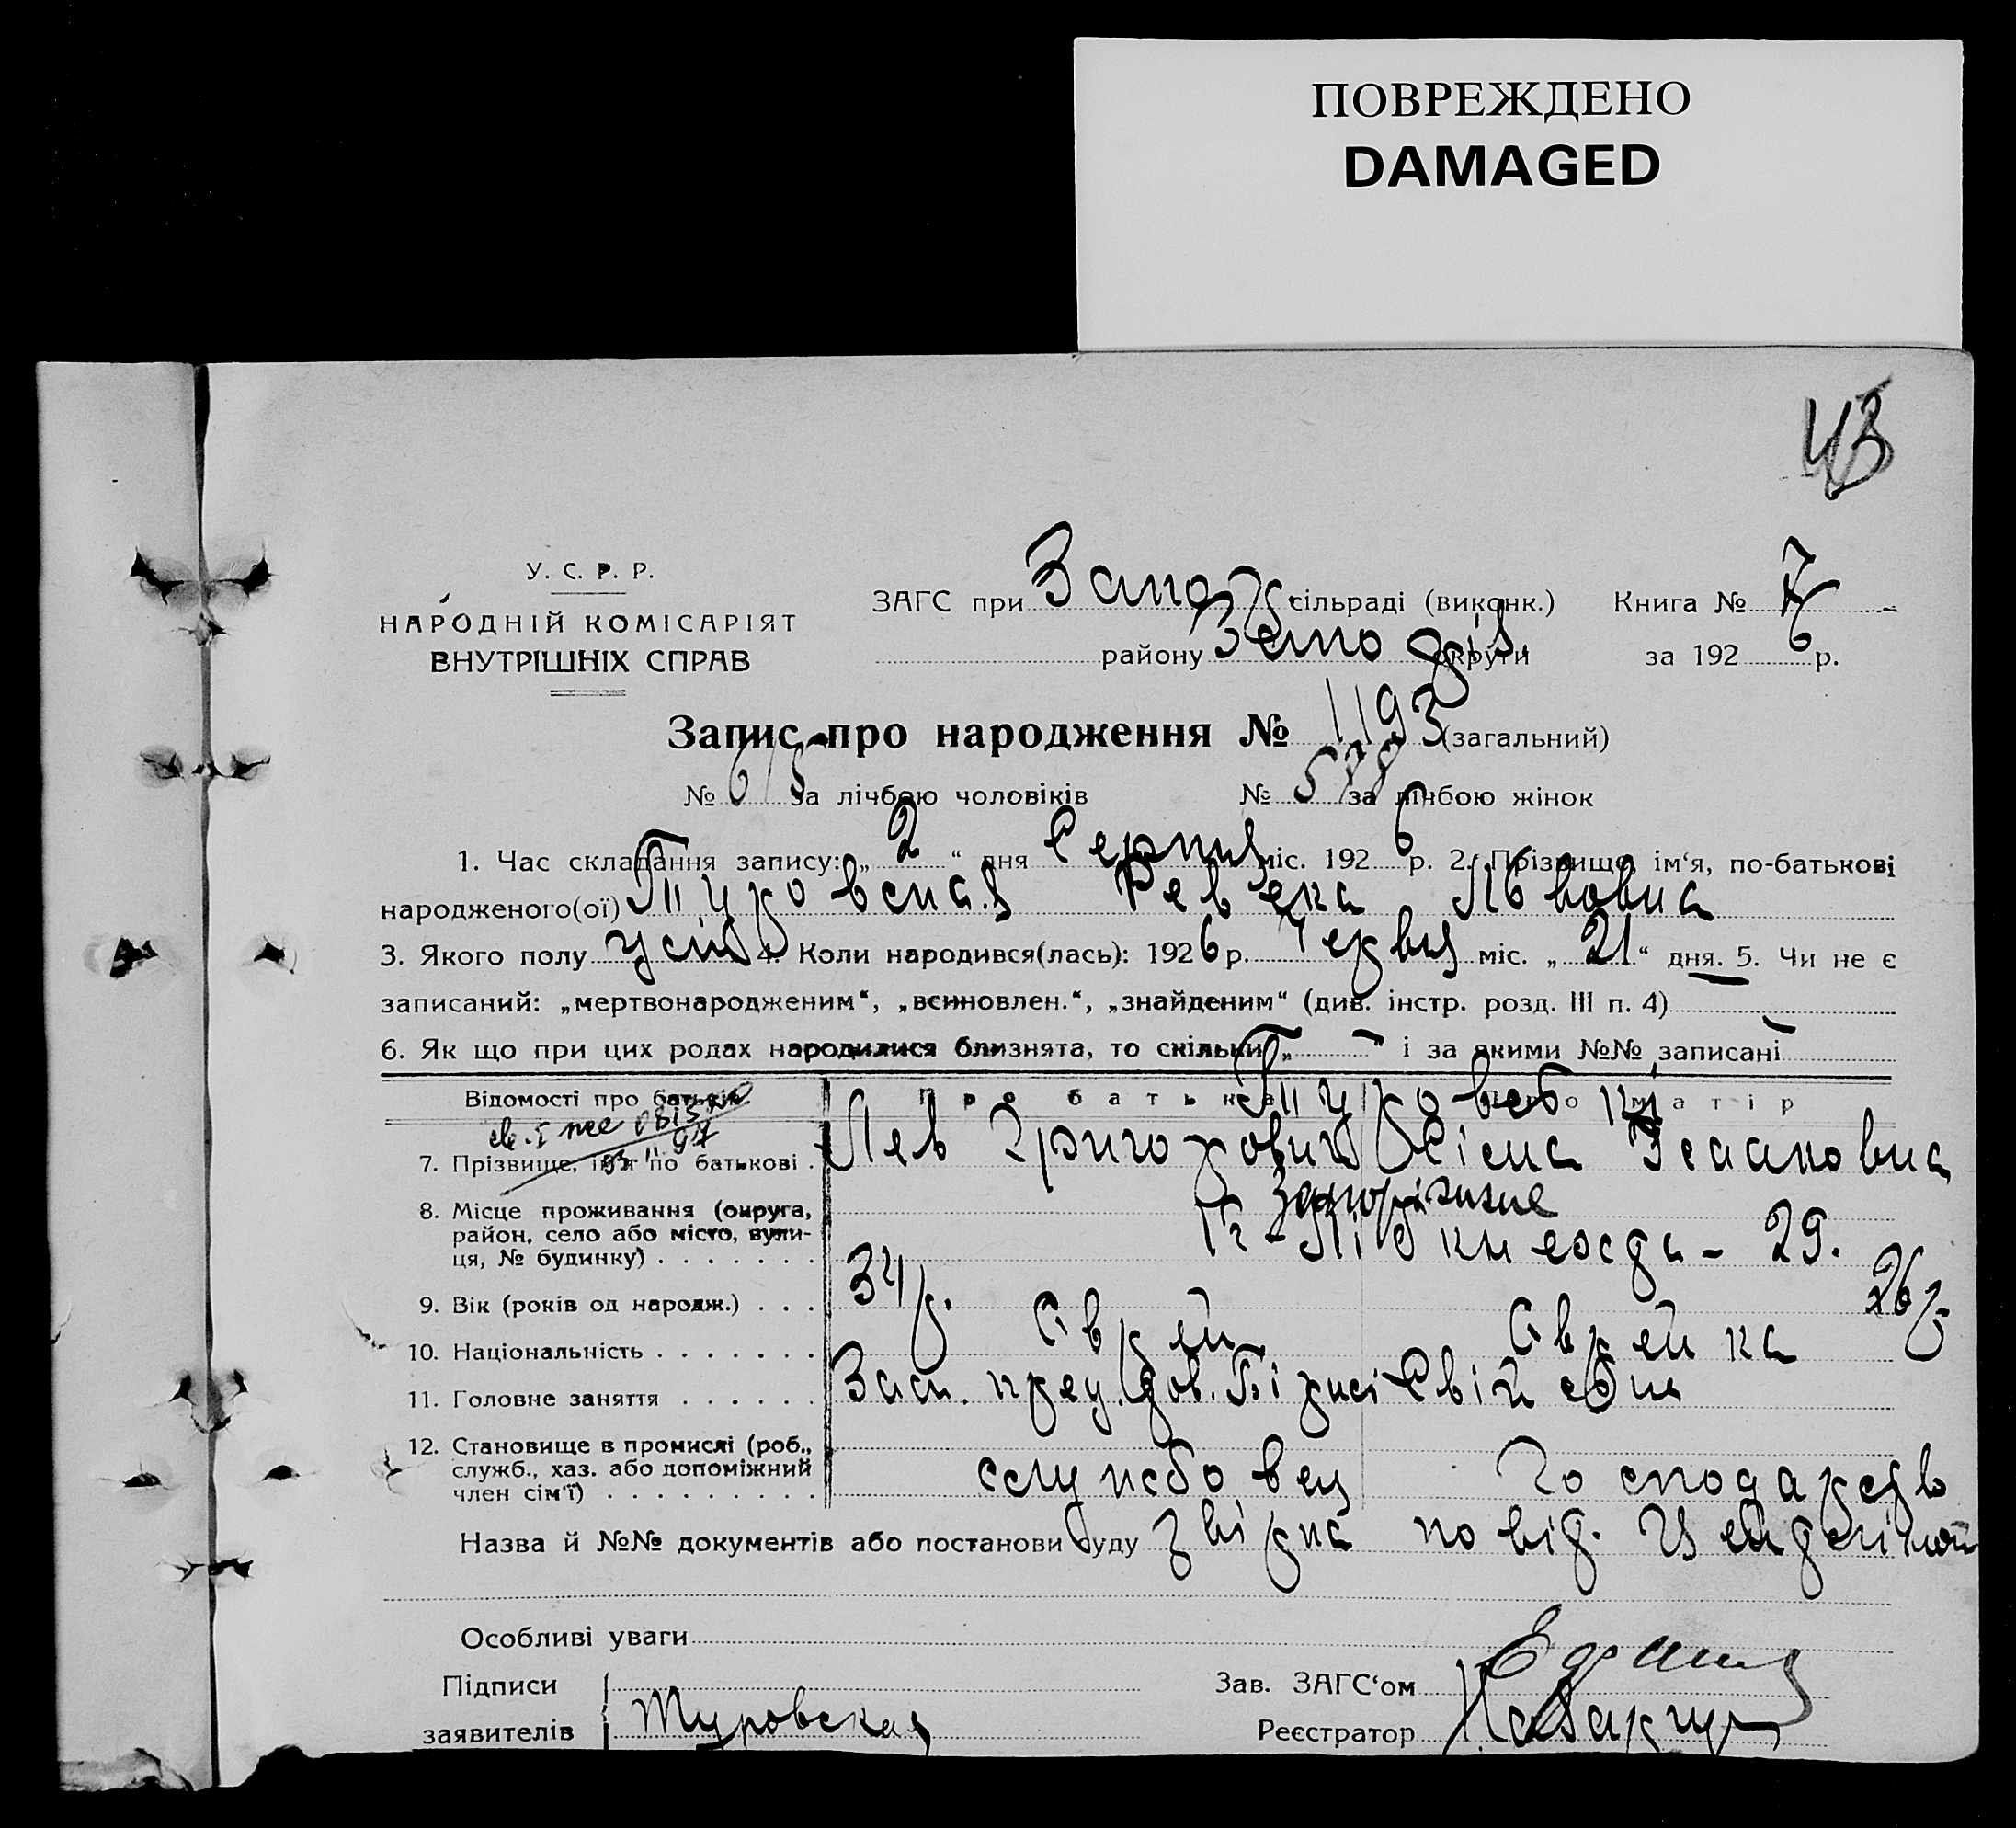 ПОВРЕЖДЕНО
DAMAGED
43
У. С. Р. Р.
НАРОДНІЙ КОМІСАРІЯТ
ВНУТРІШНІХ СПРАВ
ЗАГС при Запор. сільраді (виконк.) Книга № 7
району Запоріз. округи за 1926 р.
Запис про народження № 1193 (загальний)
№ 615 за лічбою чоловіків № 578 за лічбою жінок
1. Час складання запису: „2“ дня Серпня міс. 1926 р. 2. Прізвище, ім‘я, по-батькові
народженого(ої) Туровская Ревека Львовна
3. Якого полу 4. Коли народився(лась): 1926 р. Червня міс. „21“ дня. 5. Чи не є
записаний: „мертвонародженим“, „всиновлен.“, „знайденим“ (див. інстр. розд. III п. 4)
6. Як що при цих родах народилися близнята, то скільки „ “ і за якими №№ записані
Відомості про батьків Про батька Про матір
Туровські
7. Прізвище, ім‘я по батькові Лев Григорович Ісааковна
8. Місце проживання (округа, район, село або місто, вулиця, № будинку) Запоріжжя
29.
9. Вік (років од народж.) 34 р. 26 р.
10. Національність Єврей Єврейка
11. Головне заняття
12. Становище в промислі (роб., служб., хаз. або допоміжний член сім‘ї) службовец
Назва й №№ документів або постанови суду
Особливі уваги
Підписи Зав. ЗАГС‘ом
заявителів Туровская Реєстратор